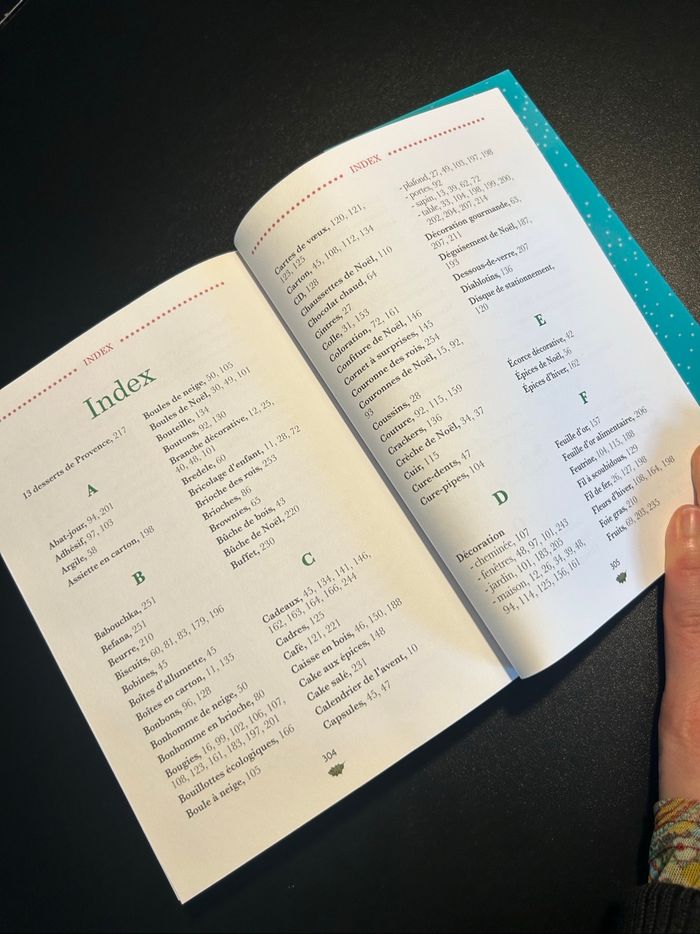 INDEX
Index
13 desserts de Provence, 217
A
Abat-jour, 94, 201
Adhésif, 97, 103
Argile, 58
Assiette en carton, 198
B
Babouchka, 251
Befana, 251
Beurre, 210
Biscuits, 60, 81, 83, 179, 196
Bobines, 45
Boîtes d'allumette, 45
Boîtes en carton, 11, 135
Bonbons, 96, 128
Bonhomme de neige, 50
Bonhomme en brioche, 80
Bougies, 16, 99, 102, 106, 107,
108, 123, 161, 183, 197, 201
Bouillottes écologiques, 166
Boule à neige, 105
Boules de neige, 50, 105
Boules de Noël, 30, 49, 101
Bouteille, 134
Boutons, 92, 130
Branche décorative, 12, 25,
40, 48, 101
Bredele, 60
Bricolage d'enfant, 11, 28, 72
Brioche des rois, 253
Brioches, 86
Brownies, 65
Bûche de bois, 43
Bûche de Noël, 220
Buffet, 230
C
Cadeaux, 45, 134, 141, 146,
162, 163, 164, 166, 244
Cadres, 125
Café, 121, 221
Caisse en bois, 46, 150, 188
Cake aux épices, 148
Cake salé, 231
Calendrier de l'avent, 10
Capsules, 45, 47
304
INDEX
Cartes de vœux, 120, 121,
123, 125
Carton, 45, 108, 112, 134
CD, 128
Chaussettes de Noël, 110
Chocolat chaud, 64
Cintres, 27
Colle, 31, 153
Coloration, 72, 161
Confiture de Noël, 146
Cornet à surprises, 145
Couronne des rois, 254
Couronnes de Noël, 15, 92,
93
Coussins, 28
Couture, 92, 115, 159
Crackers, 136
Crèche de Noël, 34, 37
Cuir, 115
Cure-dents, 47
Cure-pipes, 104
D
Décoration
- cheminée, 107
- fenêtres, 48, 97, 101, 243
- jardin, 101, 183, 205
- maison, 12, 26, 34, 39, 48,
94, 114, 125, 156, 161
- plafond, 27, 49, 103, 197, 198
- portes, 92
- sapin, 13, 39, 62, 72
- table, 33, 104, 198, 199, 200,
202, 204, 207, 214
Décoration gourmande, 63,
207, 211
Déguisement de Noël, 187,
193
Dessous-de-verre, 207
Diablotins, 136
Disque de stationnement,
120
E
Écorce décorative, 42
Épices de Noël, 56
Épices d'hiver, 162
F
Feuille d'or, 157
Feuille d'or alimentaire, 206
Feutrine, 104, 115, 188
Fil à scoubidous, 129
Fil de fer, 26, 127, 198
Fleurs d'hiver, 108, 164, 198
Foie gras, 210
Fruits, 69, 203, 235
305